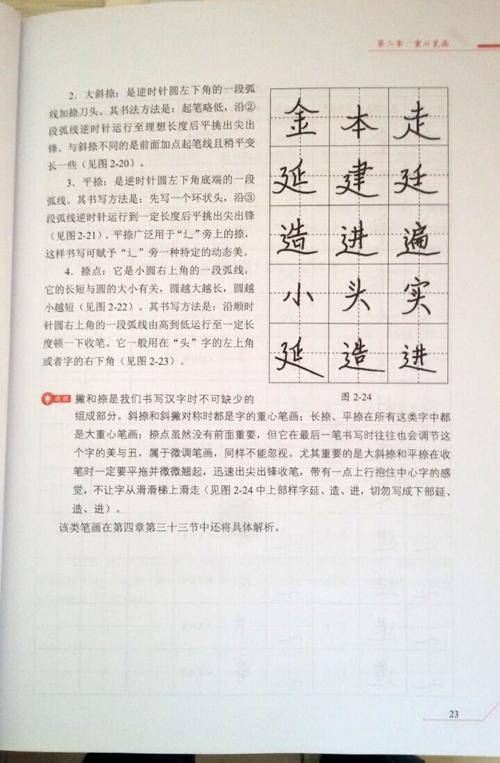 第二章 重心笔画
2．大斜捺：是逆时针圆左下角的一段弧
线加捺刀头。其书法方法是：起笔略低，沿②
段弧线逆时针运行至理想长度后平挑出尖出
锋。与斜捺不同的是前面加点起笔线且稍平变
长一些（见图2-20）。
3．平捺：是逆时针圆左下角底端的一段
弧线。其书写方法是：先写一个环状头，沿③
段弧线逆时针运行到一定长度后平挑出尖出锋
（见图2-21）。平捺广泛用于“辶”旁上的捺，
这样书写可赋予“辶”旁一种特定的动态美。
4．捺点：它是小圆右上角的一段弧线，
它的长短与圆的大小有关，圆越大越长，圆越
小越短（见图2-22）。其书写方法是：沿顺时
针圆右上角的一段弧线由高到低运行至一定长
度顿一下收笔。它一般用在“头”字的左上角
或者字的右下角（见图2-23）。
金 本 走
延 建 廷
造 进 遍
小 头 实
延 造 进
图 2-24
撇和捺是我们书写汉字时不可缺少的
组成部分。斜捺和斜撇对称时都是字的重心笔画；长捺、平捺在所有这类字中都
是大重心笔画；捺点虽然没有前面重要，但它在最后一笔书写时往往也会调节这
个字的美与丑，属于微调笔画，同样不能忽视。尤其重要的是大斜捺和平捺在收
笔时一定要平拖并微微翘起，迅速出尖出锋收笔，带有一点上行抱住中心字的感
觉，不让字从滑滑梯上滑走（见图2-24中上部样字延、造、进，切勿写成下部延、
造、进）。
该类笔画在第四章第三十三节中还将具体解析。
23